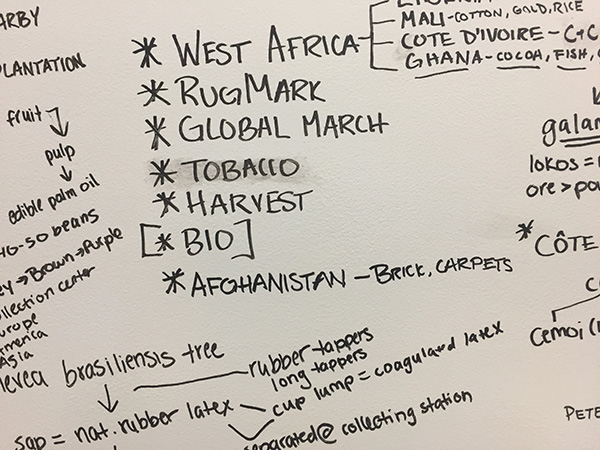 ARBY
PLANTATION
fruit
pulp
edible palm oil
40-50 beans
ey → Brown → Purple
ollection center
urope
merica
Asia
* WEST AFRICA
MALI - COTTON, GOLD, RICE
COTE D'IVOIRE - C+C
GHANA - COCOA, FISH,
* RUGMARK
* GLOBAL MARCH
* TOBACCO
* HARVEST
[* BIO]
* AFGHANISTAN - BRICK, CARPETS
galam
lokos =
ore > po
* CÔTE
Cemoi (
PETE
Hevea brasiliensis tree
rubber-tappers
long tappers
sap = nat. rubber latex - cup lump = coagulated latex
separated @ collecting station